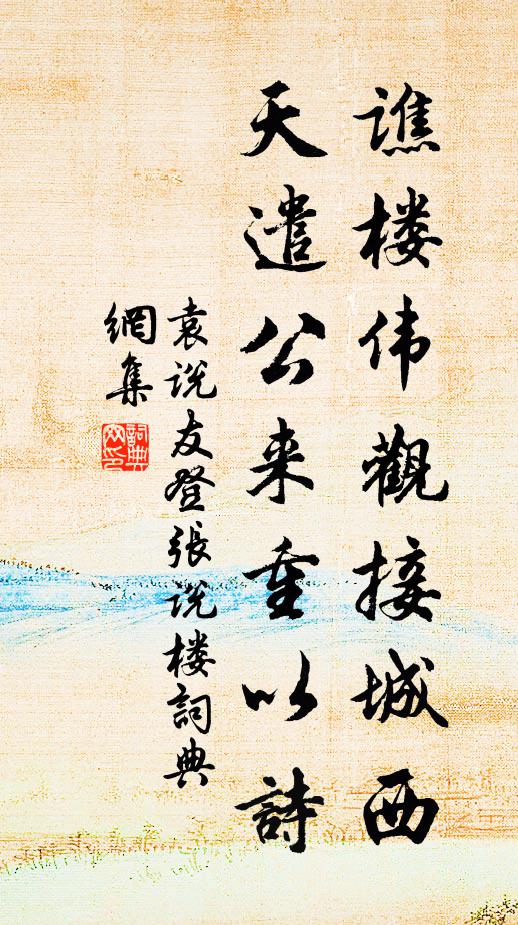 譙楼伟觀接城西
天遣公来重以詩
袁说友登张说楼詞典
網集
詞典